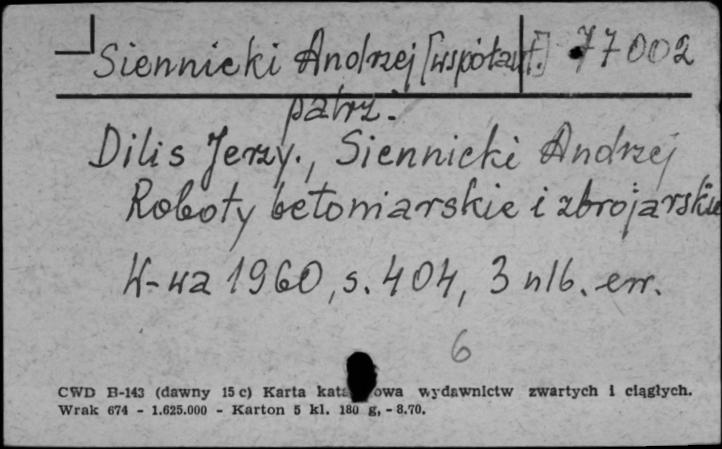 Siennicki Andrzej [współaut.] 77002
patrz:
Dilis Jerzy., Siennicki Andrzej
Roboty betoniarskie i zbrojarskie
W-wa 1960, s. 404, 3 nlb. err.
6
CWD B-143 (dawny 15 c) Karta kata owa wydawnictw zwartych i ciągłych.
Wrak 674 - 1.625.000 - Karton 5 kl. 180 g, - 8.70.